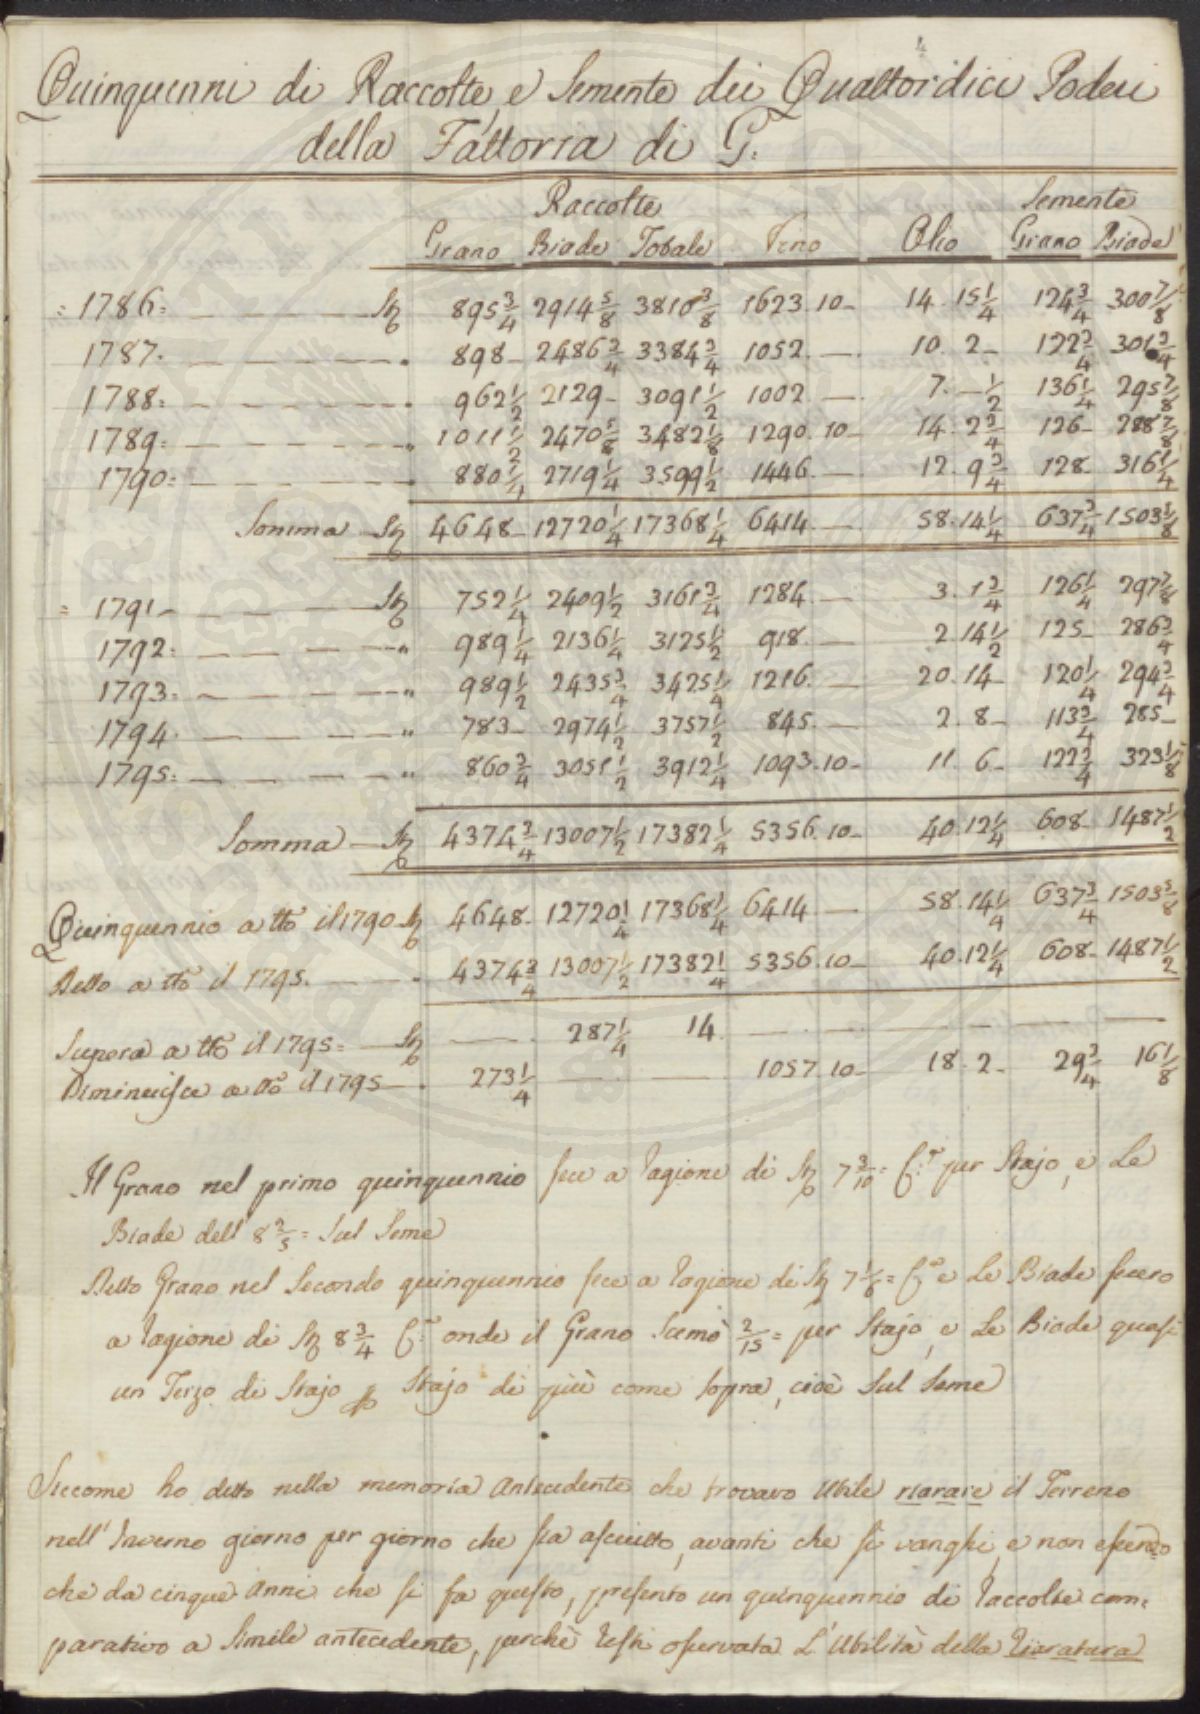 Quinquenni di Raccolte, e Semente dei Quattordici Poderi
della Fattoria di G.
Raccolte Semente
Grano Biade Totale Vino Olio Grano Biade
= 1786= Sta 895 3/4 2914 5/8 3810 3/8 1623.10- 14.15 1/4 124 3/4 300 7/8
1787. " 898- 2486 3/4 3384 3/4 1052.— 10.2- 122 3/4 301 3/4
1788= " 962 1/2 2129- 3091 1/2 1002.— 7.— 1/2 136 1/4 295 7/8
1789= " 1011 1/2 2470 5/8 3482 1/8 1290.10- 14.2 3/4 126- 288 7/8
1790= " 880 1/4 2719 1/4 3599 1/2 1446.— 12.9 3/4 128- 316 1/4
Somma Sta 4648- 12720 1/4 17368 1/4 6414.— 58.14 1/4 637 3/4 1503 5/8
= 1791- Sta 752 1/4 2409 1/2 3161 3/4 1284.— 3.1 3/4 126 1/4 297 7/8
1792= " 989 1/4 2136 1/4 3125 1/2 918.— 2.14 1/2 125- 286 3/4
1793= " 989 1/2 2435 3/4 3425 1/4 1216.— 20.14- 120 1/4 294 3/4
1794. " 783- 2974 1/2 3757 1/2 845.— 2.8- 113 3/4 285-
1795= " 860 3/4 3051 1/2 3912 1/4 1093.10- 11.6- 122 3/4 323 1/8
Somma — Sta 4374 3/4 13007 1/2 17382 1/4 5356.10- 40.12 1/4 608- 1487 1/2
Quinquennio a tto il 1790 Sta 4648- 12720 1/4 17368 1/4 6414.— 58.14 1/4 637 3/4 1503 5/8
Detto a tto il 1795. " 4374 3/4 13007 1/2 17382 1/4 5356.10- 40.12 1/4 608- 1487 1/2
Supera a tto il 1795= Sta — 287 1/4 14 — — — —
Diminuisce a tto il 1795 — . 273 1/4 — — 1057.10- 18.2- 29 3/4 16 1/8
Il Grano nel primo quinquennio fece a ragione di Sta 7 3/10= per Stajo, e Le
Biade dell' 8 2/5= Sul Seme
Detto Grano nel Secondo quinquennio fece a ragione di Sta 7 1/6= e Le Biade fecero
a ragione di Sta 8 3/4 onde il Grano Scemò 2/15= per Stajo, e Le Biade quasi
un Terzo di Stajo Stajo di più come sopra, cioè Sul Seme
Siccome ho detto nella memoria Antecedente che trovavo Utile riarare il Terreno
nell'Inverno giorno per giorno che sia asciutto, avanti che si vanghi, e non essendo
che da cinque Anni che si fa questo, presento un quinquennio di raccolte com=
parativo a Simile antecedente, perchè resti osservata L'Utilità della Riaratura